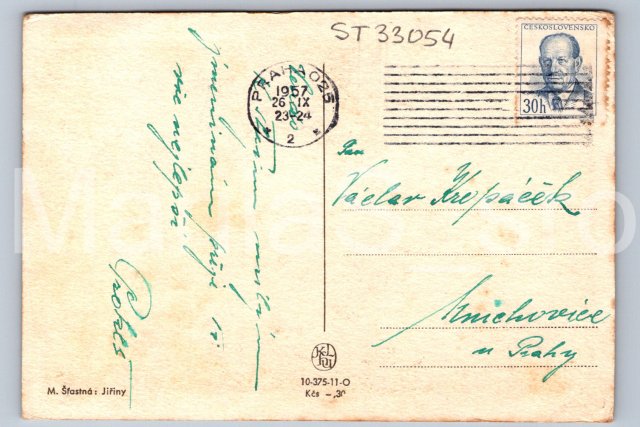 ST 33054
ČESKOSLOVENSKO
30h
PRAHA 025
1957
26 IX
23-24
2
Pan
Václav Kropáček
Mnichovice
u Prahy
jmeninám přeje
vše nejlepší
M. Šťastná: Jiřiny
10-375-11-O
Kčs -,30